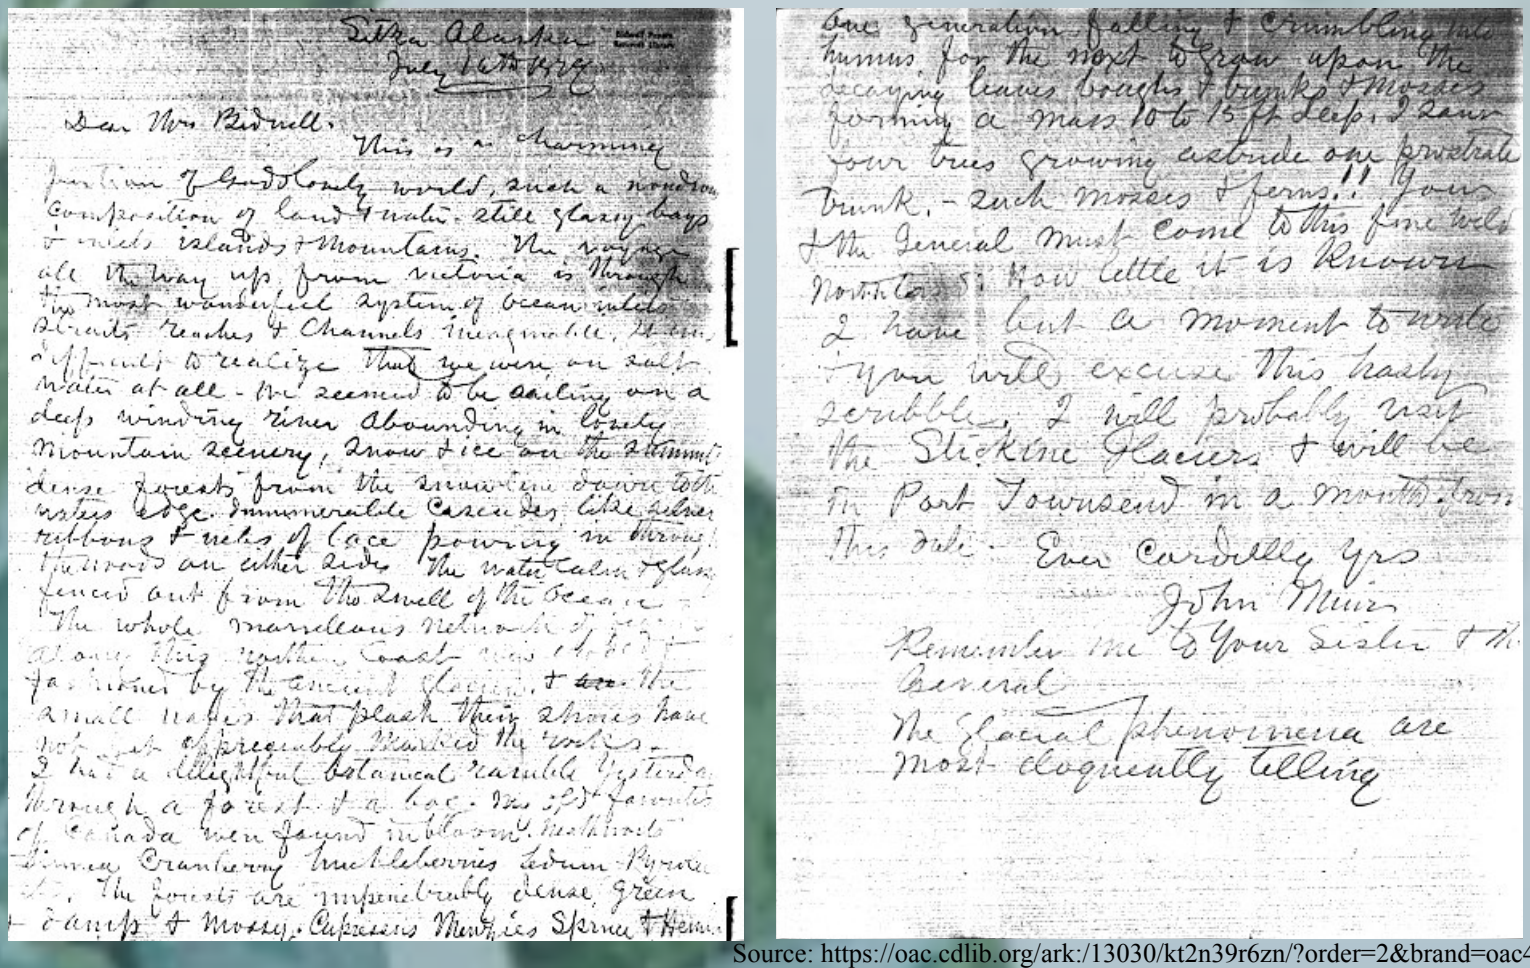 Sitka Alaska
July 10th 1879
Dear Mrs Bidwell.
This is a charming
portion of God's lovely world, such a wondrous
composition of land & water - still glassy bays
& inlets islands & mountains. The voyage
all the way up from Victoria is through
the most wonderful system of ocean inlets
straits reaches & channels imaginable. It was
difficult to realize that we were on salt
water at all - We seemed to be sailing on a
deep winding river abounding in lovely
mountain scenery, snow & ice on the summit
dense forests from the snowline down to the
waters edge. Innumerable Cascades like silver
ribbons & veils of lace pouring in through
the woods on either side. The water calm & glassy
fenced out from the swell of the Ocean -
The whole marvellous network of
along this northern Coast
fashioned by the ancient glaciers, & the
small waves that plash their shores have
not yet appreciably marked the rocks -
I had a delightful botanical ramble Yesterday
through a forest & a bog. My old favorites
of Canada were found in bloom.
Linnea Cranberry huckleberries Ledum Pyrola
The forests are impenetrably dense, green
& damp & mossy. Cupressus Menzies Spruce &
One generation falling & crumbling into
humus for the next to grow upon. The
decaying leaves boughs & trunks & Mosses
forming a mass 10 to 15 ft deep. I saw
four trees growing astride one prostrate
trunk. - such mosses & ferns!! You
& the General must come to this fine wild
How little it is known
I have but a moment to write
you will excuse this hasty
scribble. I will probably visit
the Stickine Glaciers & will be
in Port Townsend in a month from
this date - Ever Cordially Yrs
John Muir
Remember me to Your Sister & the
General
The glacial phenomena are
most eloquently telling
Source: https://oac.cdlib.org/ark:/13030/kt2n39r6zn/?order=2&brand=oac4